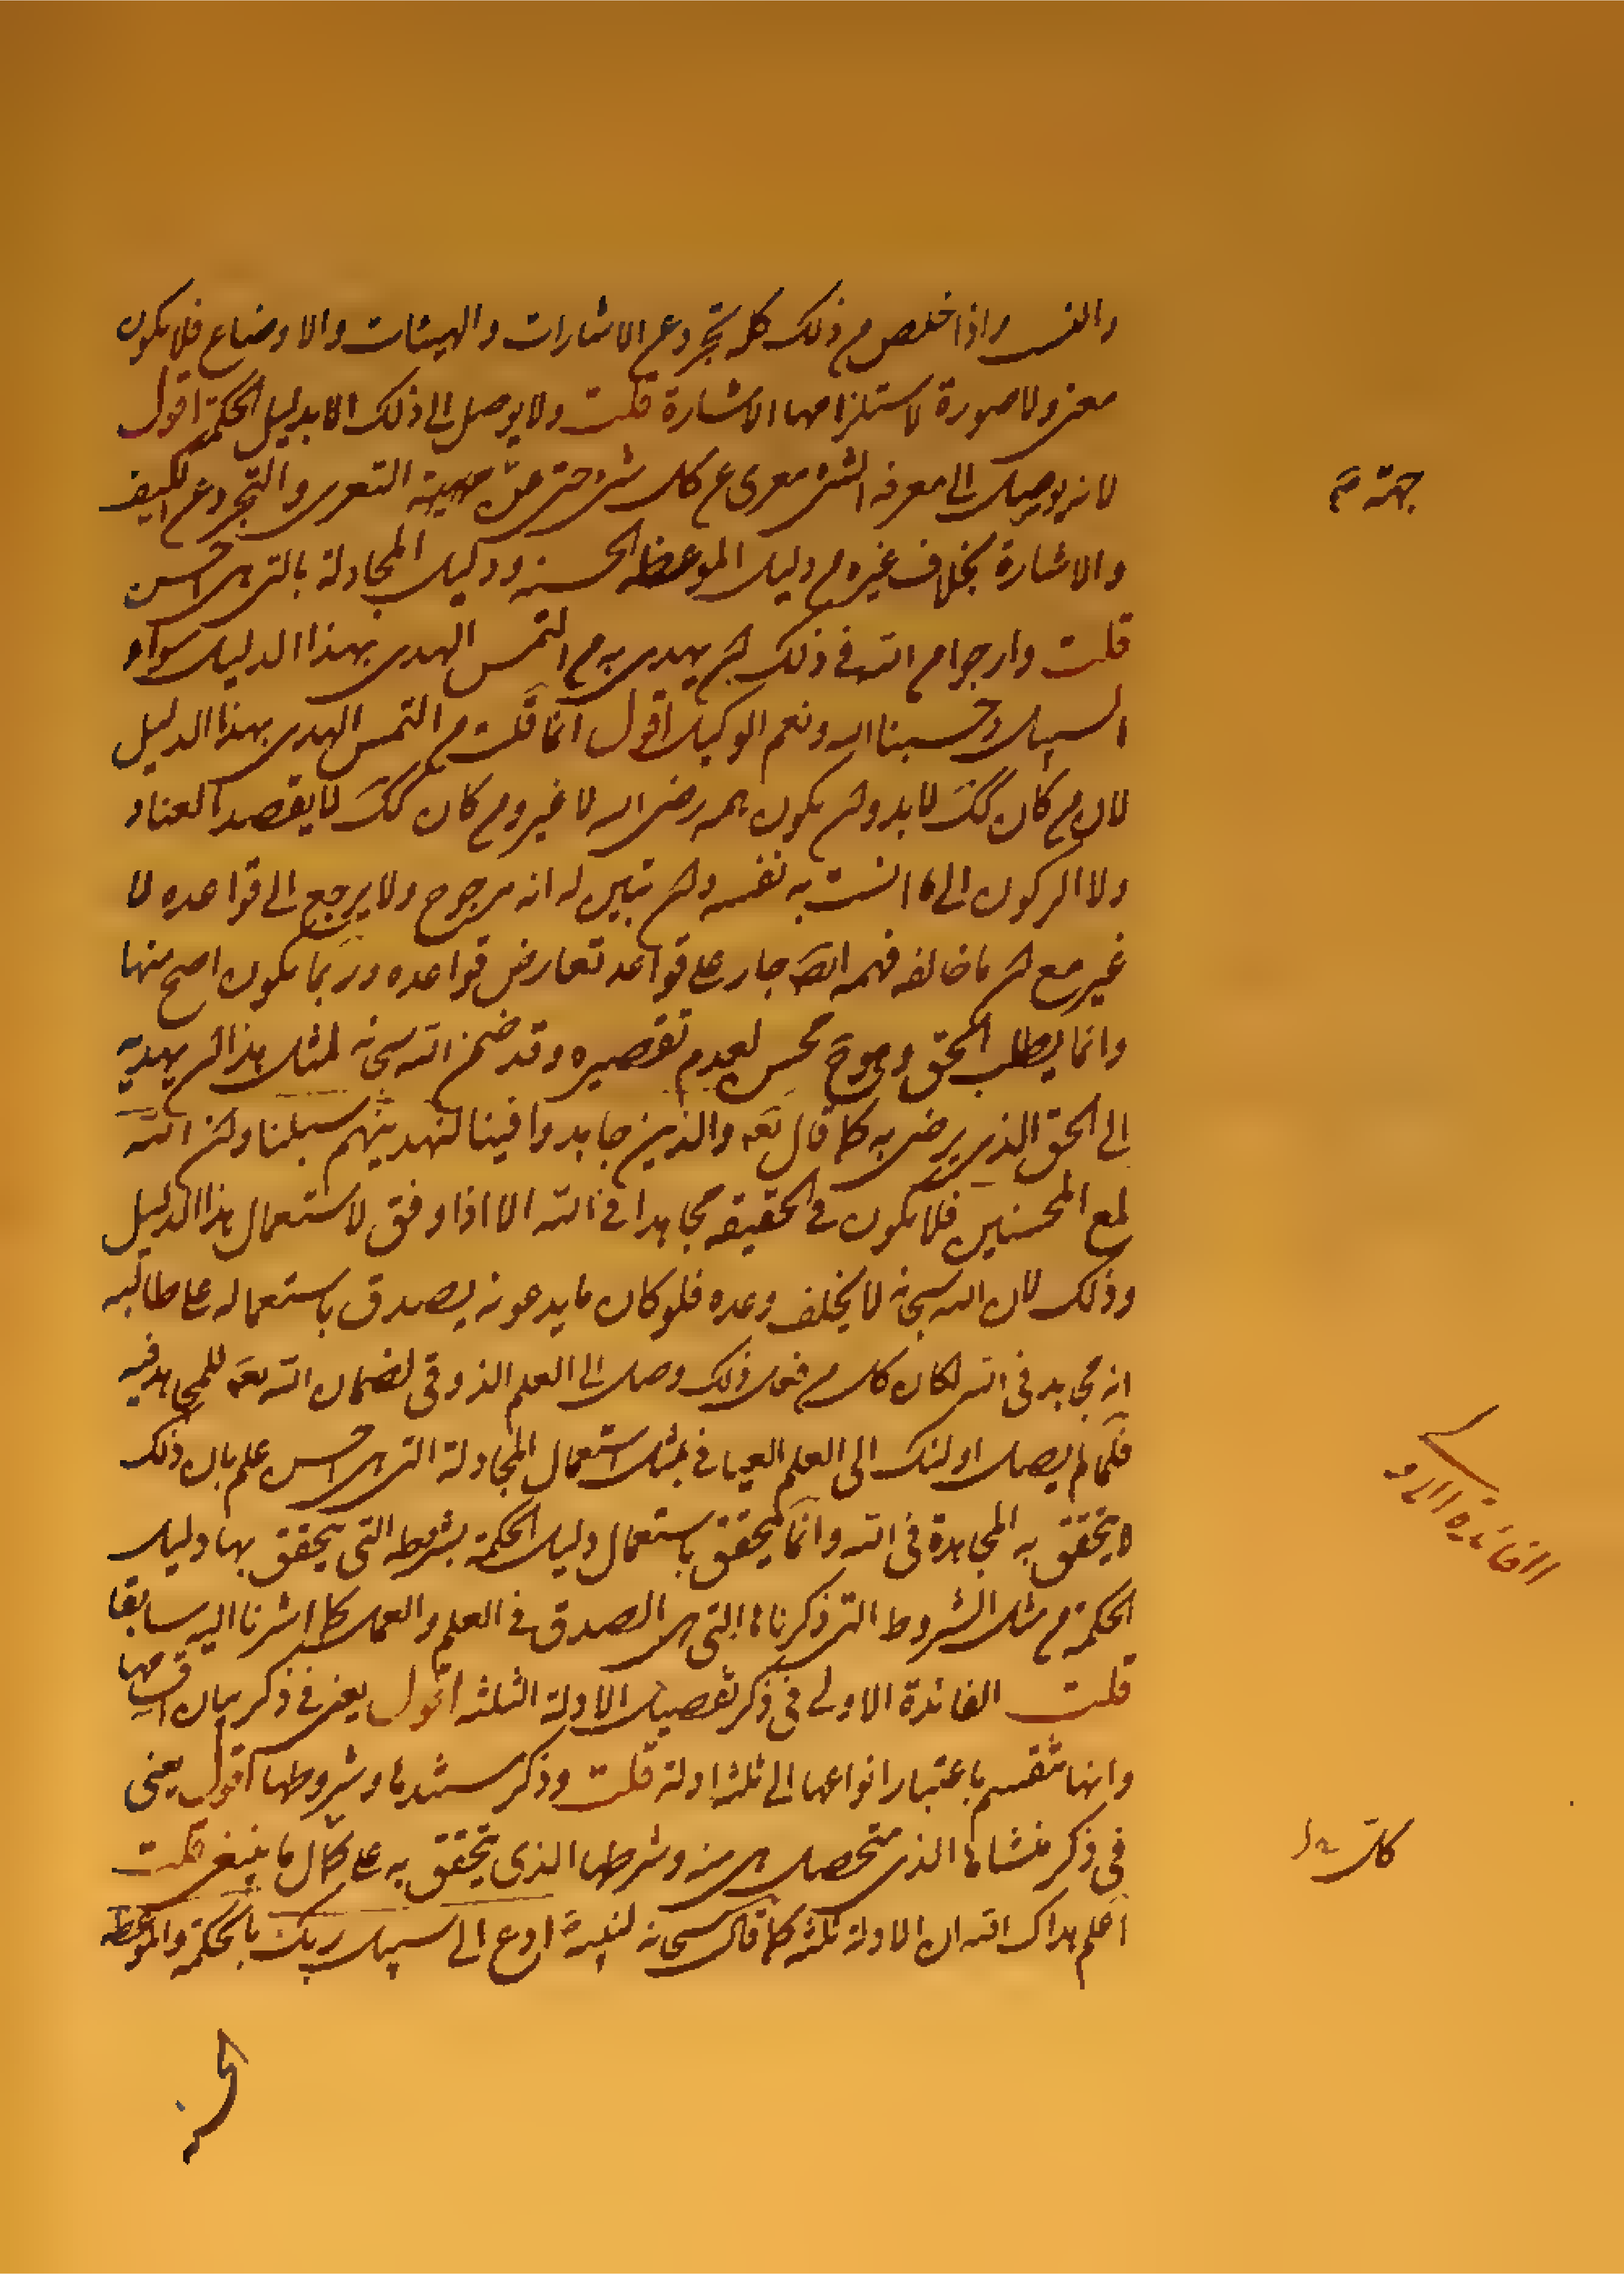 والنسب واذا خلص من ذلك كله تجرد عن الاشارات والهيئات والاوضاع فلا يكون
معنى ولا صورة لاستلزامها الاشارة قلت ولا يوصل الى ذلك الا بدليل الحكمة اقول
لانه يوصل الى معرفة الشئ معرى عن كل شئ حتى عن جهة التعرى والتجرد عن الكيف
جهة م
والاشارة بخلاف غيره من دليل الموعظة الحسنه ودليل المجادلة بالتى هى احسن
قلت وارجوا من الله فى ذلك ان يهدى به من التمس الهدى بهذا الدليل سواء
السبيل وحسبنا الله ونعم الوكيل اقول انما قلت من التمس الهدى بهذا الدليل
لان من كان كك لا بد وان يكون همه رضى الله لا غير ومن كان كك لا يقصد العناد
ولا الركون الى ما انست به نفسه وان تبين له انه مرجوح ولا يرجع الى قواعده لا
غير مع ان ما خالف فهمه ايضا جار على قواعد تعارض قواعده وربما يكون اصح منها
وانما يطلب الحق وهو ح محسن لعدم تقصيره وقد ضمن الله سبحانه لمثل هذا ان يهديه
الى الحق الذى يرضى به كما قال تعه والذين جاهدوا فينا لنهدينهم سبلنا وان الله
لمع المحسنين فلا يكون فى الحقيقة مجاهدا فى الله الا اذا وفق لاستعمال هذا الدليل
وذلك لان الله سبحانه لا يخلف وعده فلو كان ما يدعونه يصدق باستعماله على طالبه
انه مجاهد فى الله لكان كل من فعل ذلك وصل الى العلم الذوقى لضمان الله تعه للمجاهد فيه
فلما لم يصل اولئك الى العلم العيانى بمثل استعمال المجادلة التى هى احسن علم بان ذلك
لا يتحقق به المجاهدة فى الله وانما يتحقق باستعمال دليل الحكمة بشرطه التى يتحقق بها دليل
الحكمة من مثل الشروط التى ذكرناها التى هى الصدق فى العلم والعمل كما اشرنا اليه سابقا
الفائدة الاولى
قلت الفائدة الاولى فى ذكر تفصيل الادلة الثلثه اقول يعنى فى ذكر بيان اقسامها
وانها تنقسم باعتبار انواعها الى ثلثة ادلة قلت وذكر مستندها وشروطها اقول يعنى
فى ذكر منشاها الذى متحصل هى منه وشرطها الذى يتحقق به على كمال ما ينبغى قلت
اعلم هداك الله ان الادلة ثلثه كما قال سبحانه لنبيه ادع الى سبيل ربك بالحكمة والموعظة
الحسنه